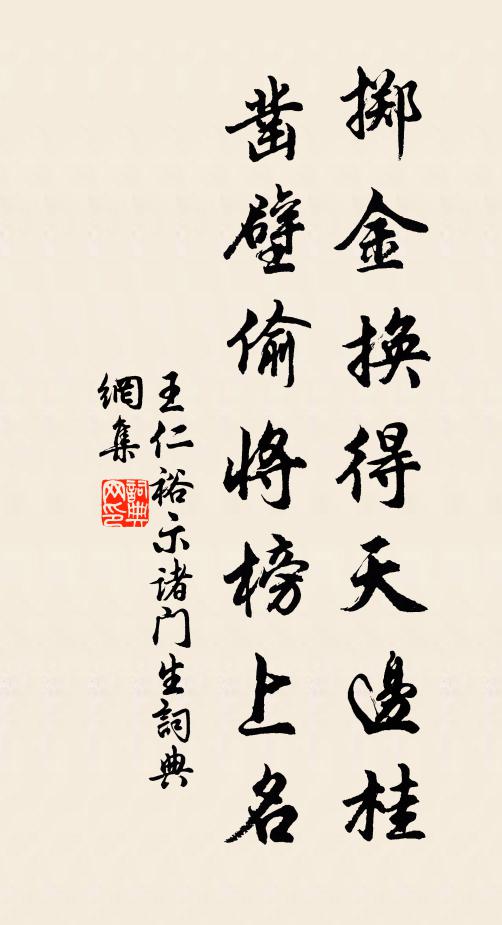 掷金换得天邊桂
凿壁偷將榜上名
王仁裕示諸门生詞典
網集
詞典网印